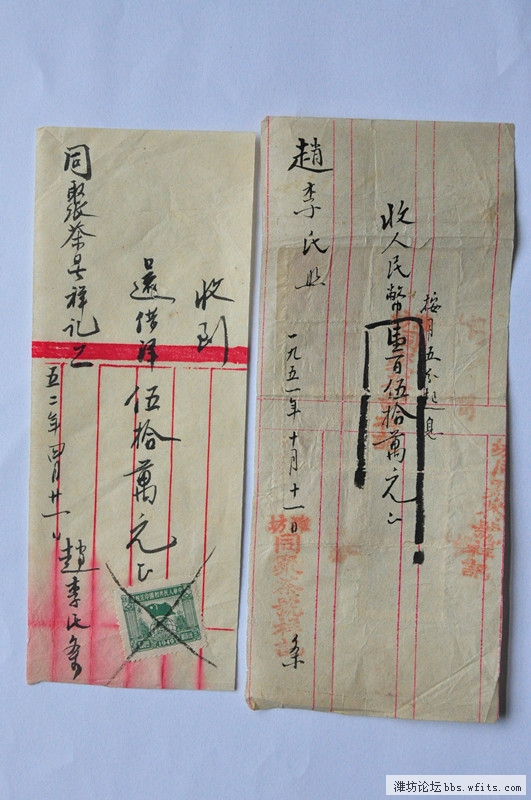 趙李氏照
收人民幣壹百伍拾萬元正
按月五分起息
一九五一年十月十一日
条
濰坊
同聚茶號祥記
收到
還借洋伍拾萬元正
同聚茶號祥記
五二年四月廿一日
趙李氏条
1949
潍坊论坛bbs.wfits.com